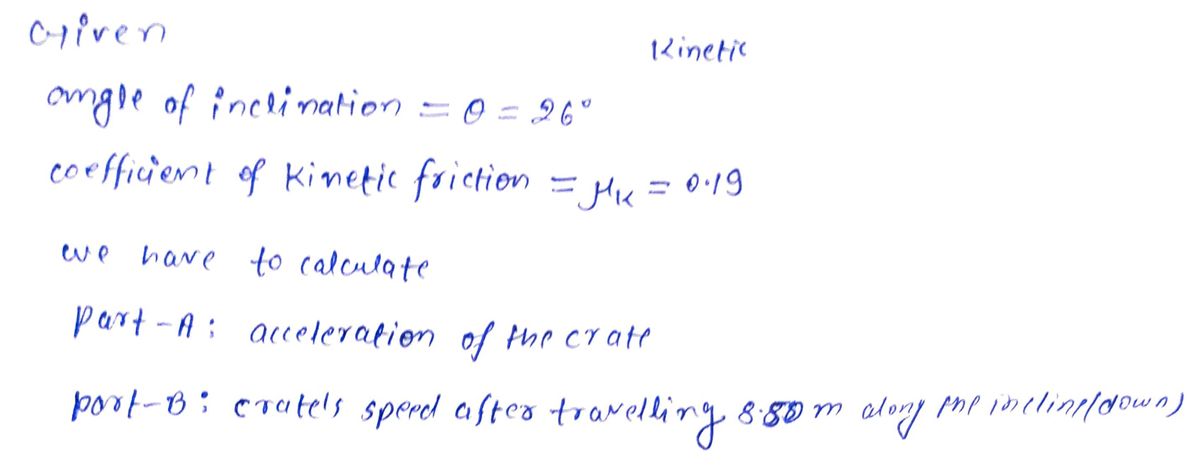 Given
Kinetic
angle of inclination = θ = 26°
coefficient of kinetic friction = μK = 0.19
we have to calculate
part-A: acceleration of the crate
part-B: crate's speed after travelling 8.80 m along the incline(down)